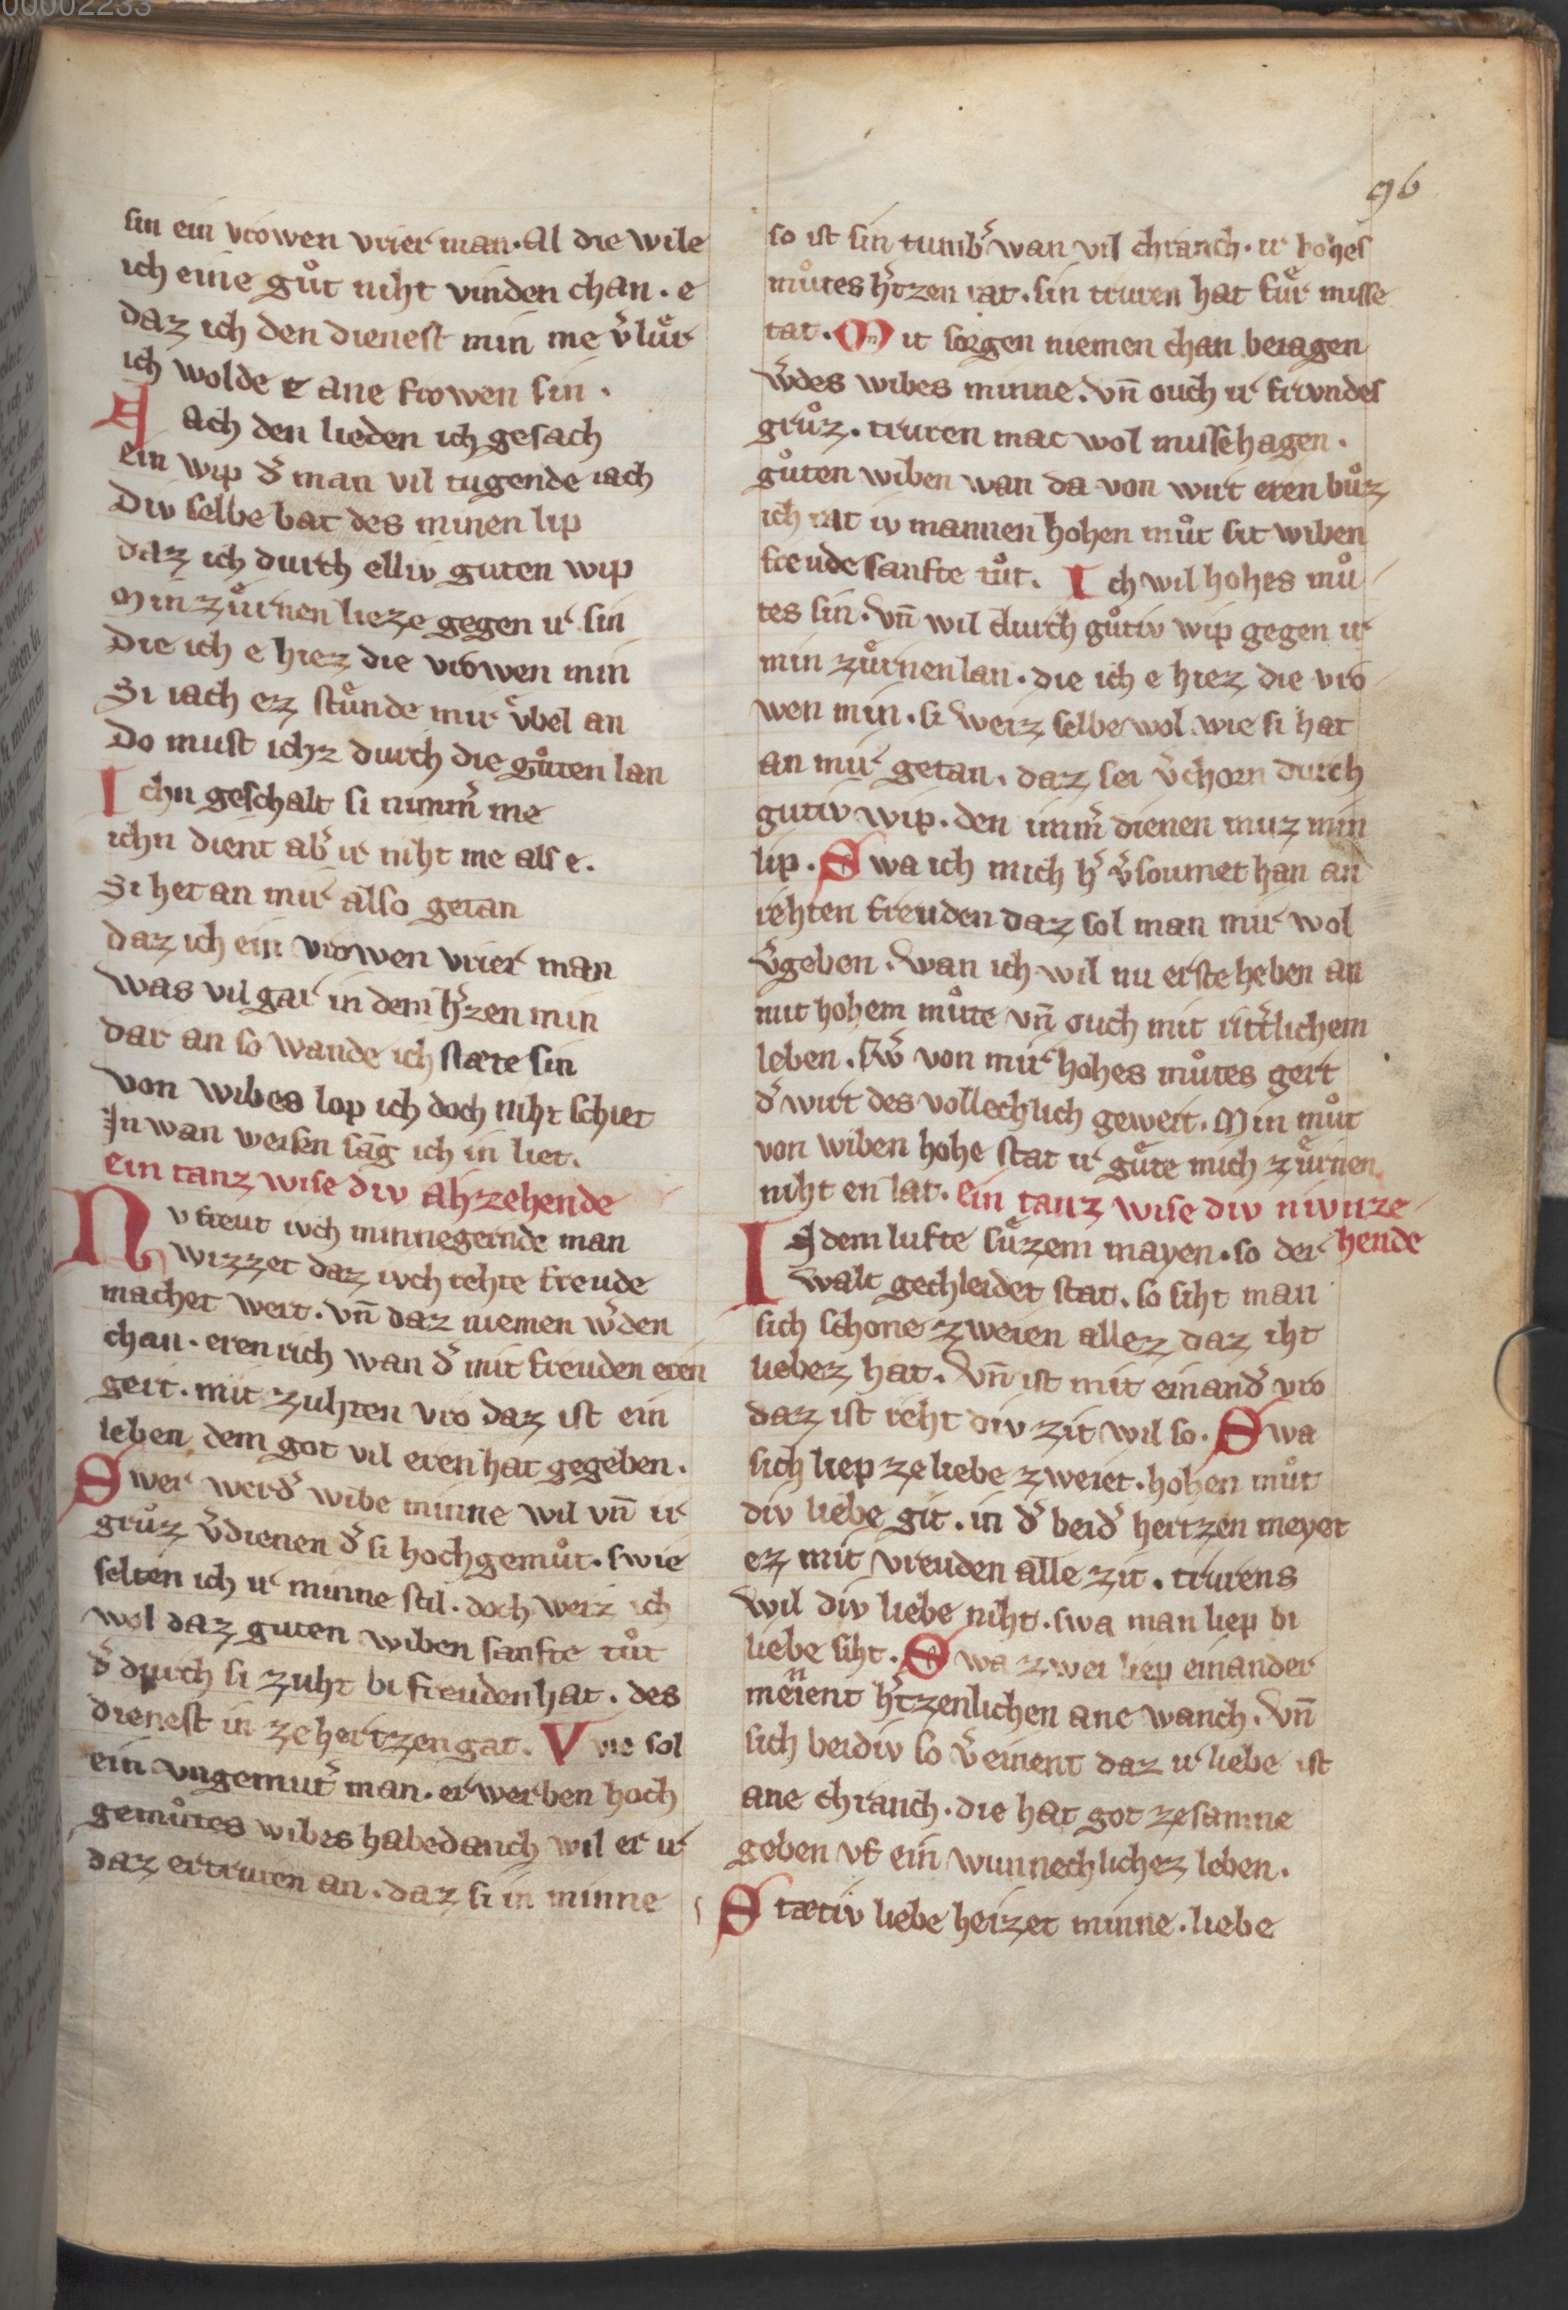 00002233
96
sin ein vrowen vrier man. Al die wile
ich eine guͦt niht vinden chan. e
daz ich den dienest min me v̄luͤr
ich wolde e ane frowen sin.
Nach den lieden ich gesach
ein wip d̄ man vil tugende iach
Div selbe bat des minen lip
daz ich durch elliv guten wip
Min zuͤrnen lieze gegen ir sin
Die ich e hiez die vrowen min
Si iach ez stuͤnde mir vͤbel an
Do must ichz durch die guͦten lan
Ichn geschalt si nimm̄ me
ichn dient ab̄ ir niht me als e.
Si het an mir also getan
daz ich ein vrowen vrier man
Was vil gar in dem h̄zen min
dar an so wande ich stæte sin
Von wibes lop ich doch niht schiet
In wan weisen sāg ich in liet.
Ein tanz wise div ahzehende
Nv freut ivch minnegernde man
wizzet daz ivch rehte freude
machet wert. vn̄ daz niemen w̄den
chan. eren rich wan d̄ mit freuden eren
gert. mit zuhten vro daz ist ein
leben dem got vil eren hat gegeben.
Swer werd̄ wibe minne wil vn̄ ir
gruͦz v̄dienen d̄ si hochgemuͦt. swie
selten ich ir minne stil. doch weiz ich
wol daz guten wiben sanfte tuͦt
d̄ durch si zuht bi freuden hat. des
dienest in ze hertzen gat. Wie sol
ein vngemut̄ man. erwerben hoch
gemuͦtes wibes habedanch wil er ir
daz ertruren an. daz si in minne
so ist sin tumb̄ wan vil chranch. ir hohes
muͦtes h̄tzen rat. sin truren hat fuͤr misse
tat. Mit sorgen niemen chan beiagen
w̄des wibes minne. vn̄ ouch ir frvndes
gruͦz. truren mac wol missehagen.
guͦten wiben wan da von wirt eren buͦz
ich rat iv mannen hohen muͦt sit wiben
freude sanfte tuͦt. Ich wil hohes muͦ
tes sin. vn̄ wil durch guͦtiv wip gegen ir
min zuͤrnen lan. die ich e hiez die vro
wen min. si weiz selbe wol wie si hat
an mir getan. daz sei v̄chorn durch
gutiv wip. den imm̄ dienen muz min
lip. Swa ich mich h̄ v̄soumet han an
rehten freuden daz sol man mir wol
v̄geben. wan ich wil nu erste heben an
mit hohem muͦte vn̄ ouch mit ritt̄lichem
leben. sw̄ von mir hohes muͦtes gert
d̄ wirt des vollechlich gewert. Min muͦt
von wiben hohe stat ir guͤte mich zuͤrnen
niht en lat. Ein tanz wise div nivnze
hende
In dem lufte suͤzem mayen. so der
walt gechleidet stat. so siht man
sich schone zweien allez daz iht
liebez hat. vn̄ ist mit einand̄ vro
daz ist reht div zit wil so. Swa
sich liep ze liebe zweiet. hohen muͦt
div liebe git. in d̄ beid̄ hertzen meyet
ez mit vreuden alle zit. trurens
wil div liebe niht. swa man liep bi
liebe siht. Swa zwei liep einander
meinent h̄tzenlichen ane wanch. vn̄
sich beidiv so v̄einent daz ir liebe ist
ane chranch. die hat got zesamne
geben vf ein wunnechlichez leben.
Stætiv liebe heizet minne. liebe